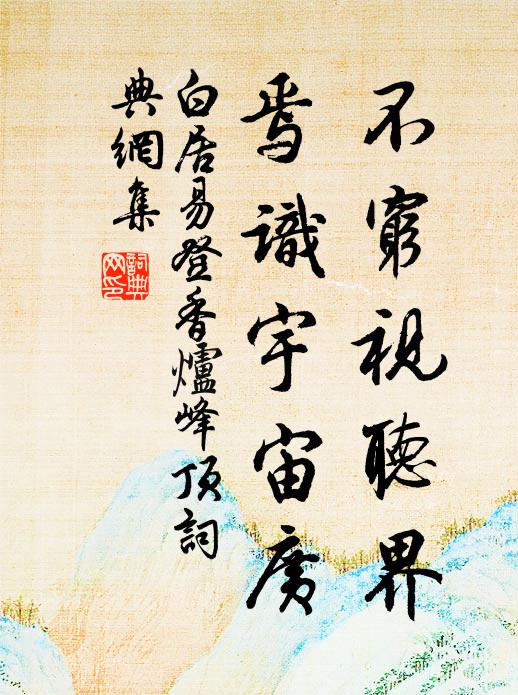 不窮視聽界
焉識宇宙廣
白居易登香爐峰頂詞
典網集
詞典網印